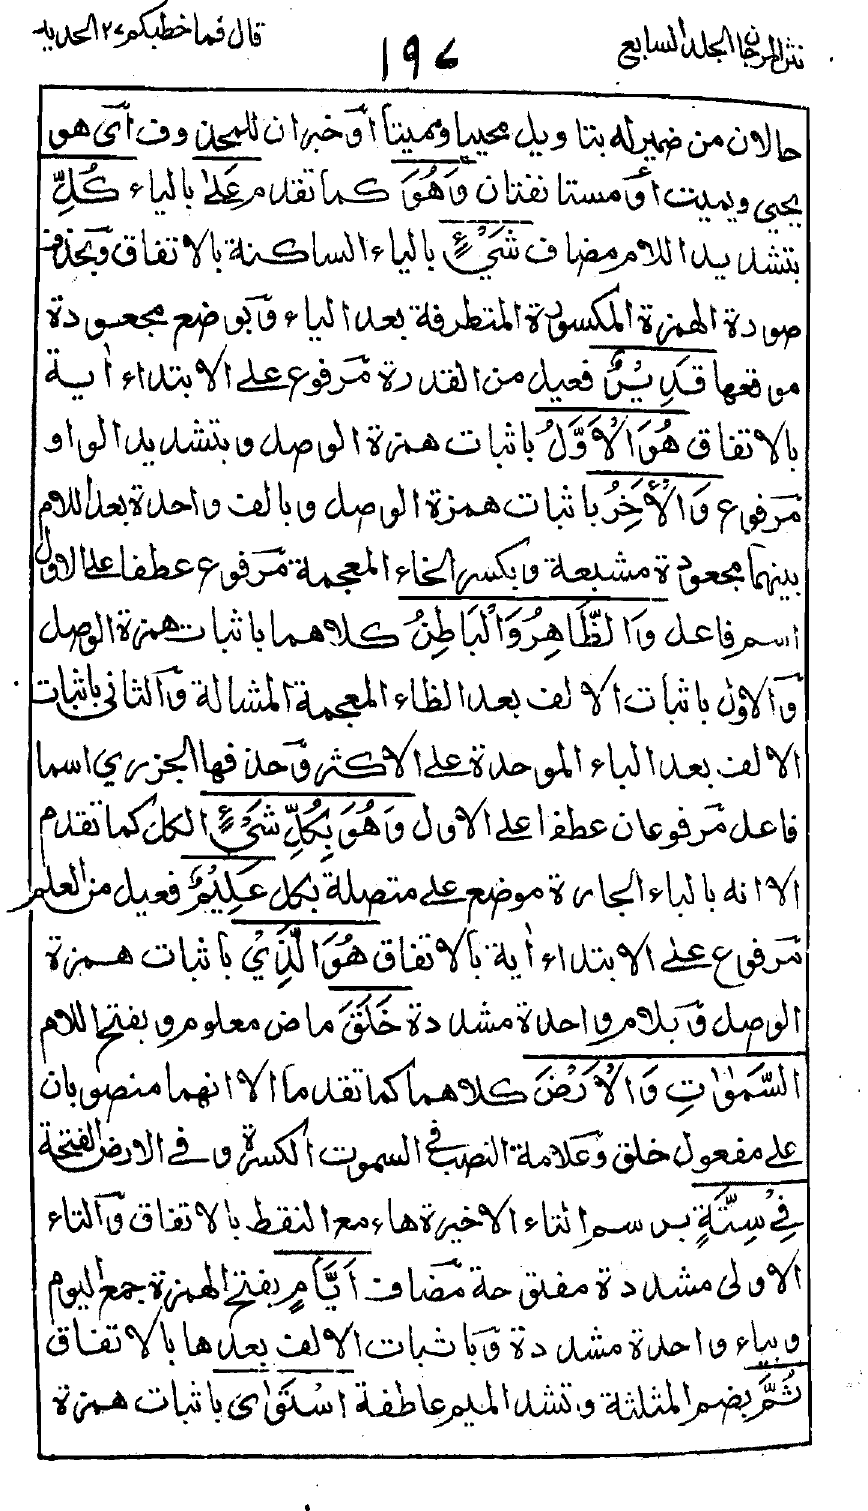 نثر المرجان المجلد السابع
١٩٧
قال فما خطبكم ٢٧ الحديد
حالان من ضمير له بتاويل محييا ومميتا أو خبران للمحذوف أى هو
يحيي ويميت أو مستانفتان وَهُوَ كما تقدم عَلٰى بالياء كُلِّ
بتشديد اللام مضاف شَيْءٍ بالياء الساكنة بالاتفاق وبحذف
صورة الهمزة المكسورة المتطرفة بعد الياء وبوضع مجعودة
موقعها قَدِيْرٌ فعيل من القدرة مرفوع على الابتداء أية
بالاتفاق هُوَ الْاَوَّلُ باثبات همزة الوصل وبتشديد الواو
مرفوع وَالْأٰخِرُ باثبات همزة الوصل وبالف واحدة بعد اللام
بينهما مجعودة مشبعة وبكسر الخاء المعجمة مرفوع عطفا على الاول
اسم فاعل وَالظَّاهِرُ وَالْبَاطِنُ كلاهما باثبات همزة الوصل
والاول باثبات الالف بعد الظاء المعجمة المشالة والثاني باثبات
الالف بعد الباء الموحدة على الاكثر وحذفها الجزري اسما
فاعل مرفوعان عطفا على الاول وَهُوَ بِكُلِّ شَيْءٍ الكل كما تقدم
الا انه بالباء الجارة موضع على متصلة بكل عَلِيْمٌ فعيل من العلم
مرفوع على الابتداء أية بالاتفاق هُوَ الَّذِيْ باثبات همزة
الوصل وبلام واحدة مشددة خَلَقَ ماض معلوم وبفتح اللام
السَّمٰوٰتِ وَالْاَرْضَ كلاهما كما تقدما الا انهما منصوبان
على مفعول خلق وعلامة النصب في السموت الكسرة وفي الارض الفتحة
فِيْ سِتَّةِ برسم التاء الاخيرة هاء مع النقط بالاتفاق والتاء
الاولى مشددة مفتوحة مضاف اَيَّامٍ بفتح الهمزة جمع اليوم
وبياء واحدة مشددة وباثبات الالف بعدها بالاتفاق
ثُمَّ بضم المثلثة وتشد الميم عاطفة اسْتَوٰى باثبات همزة